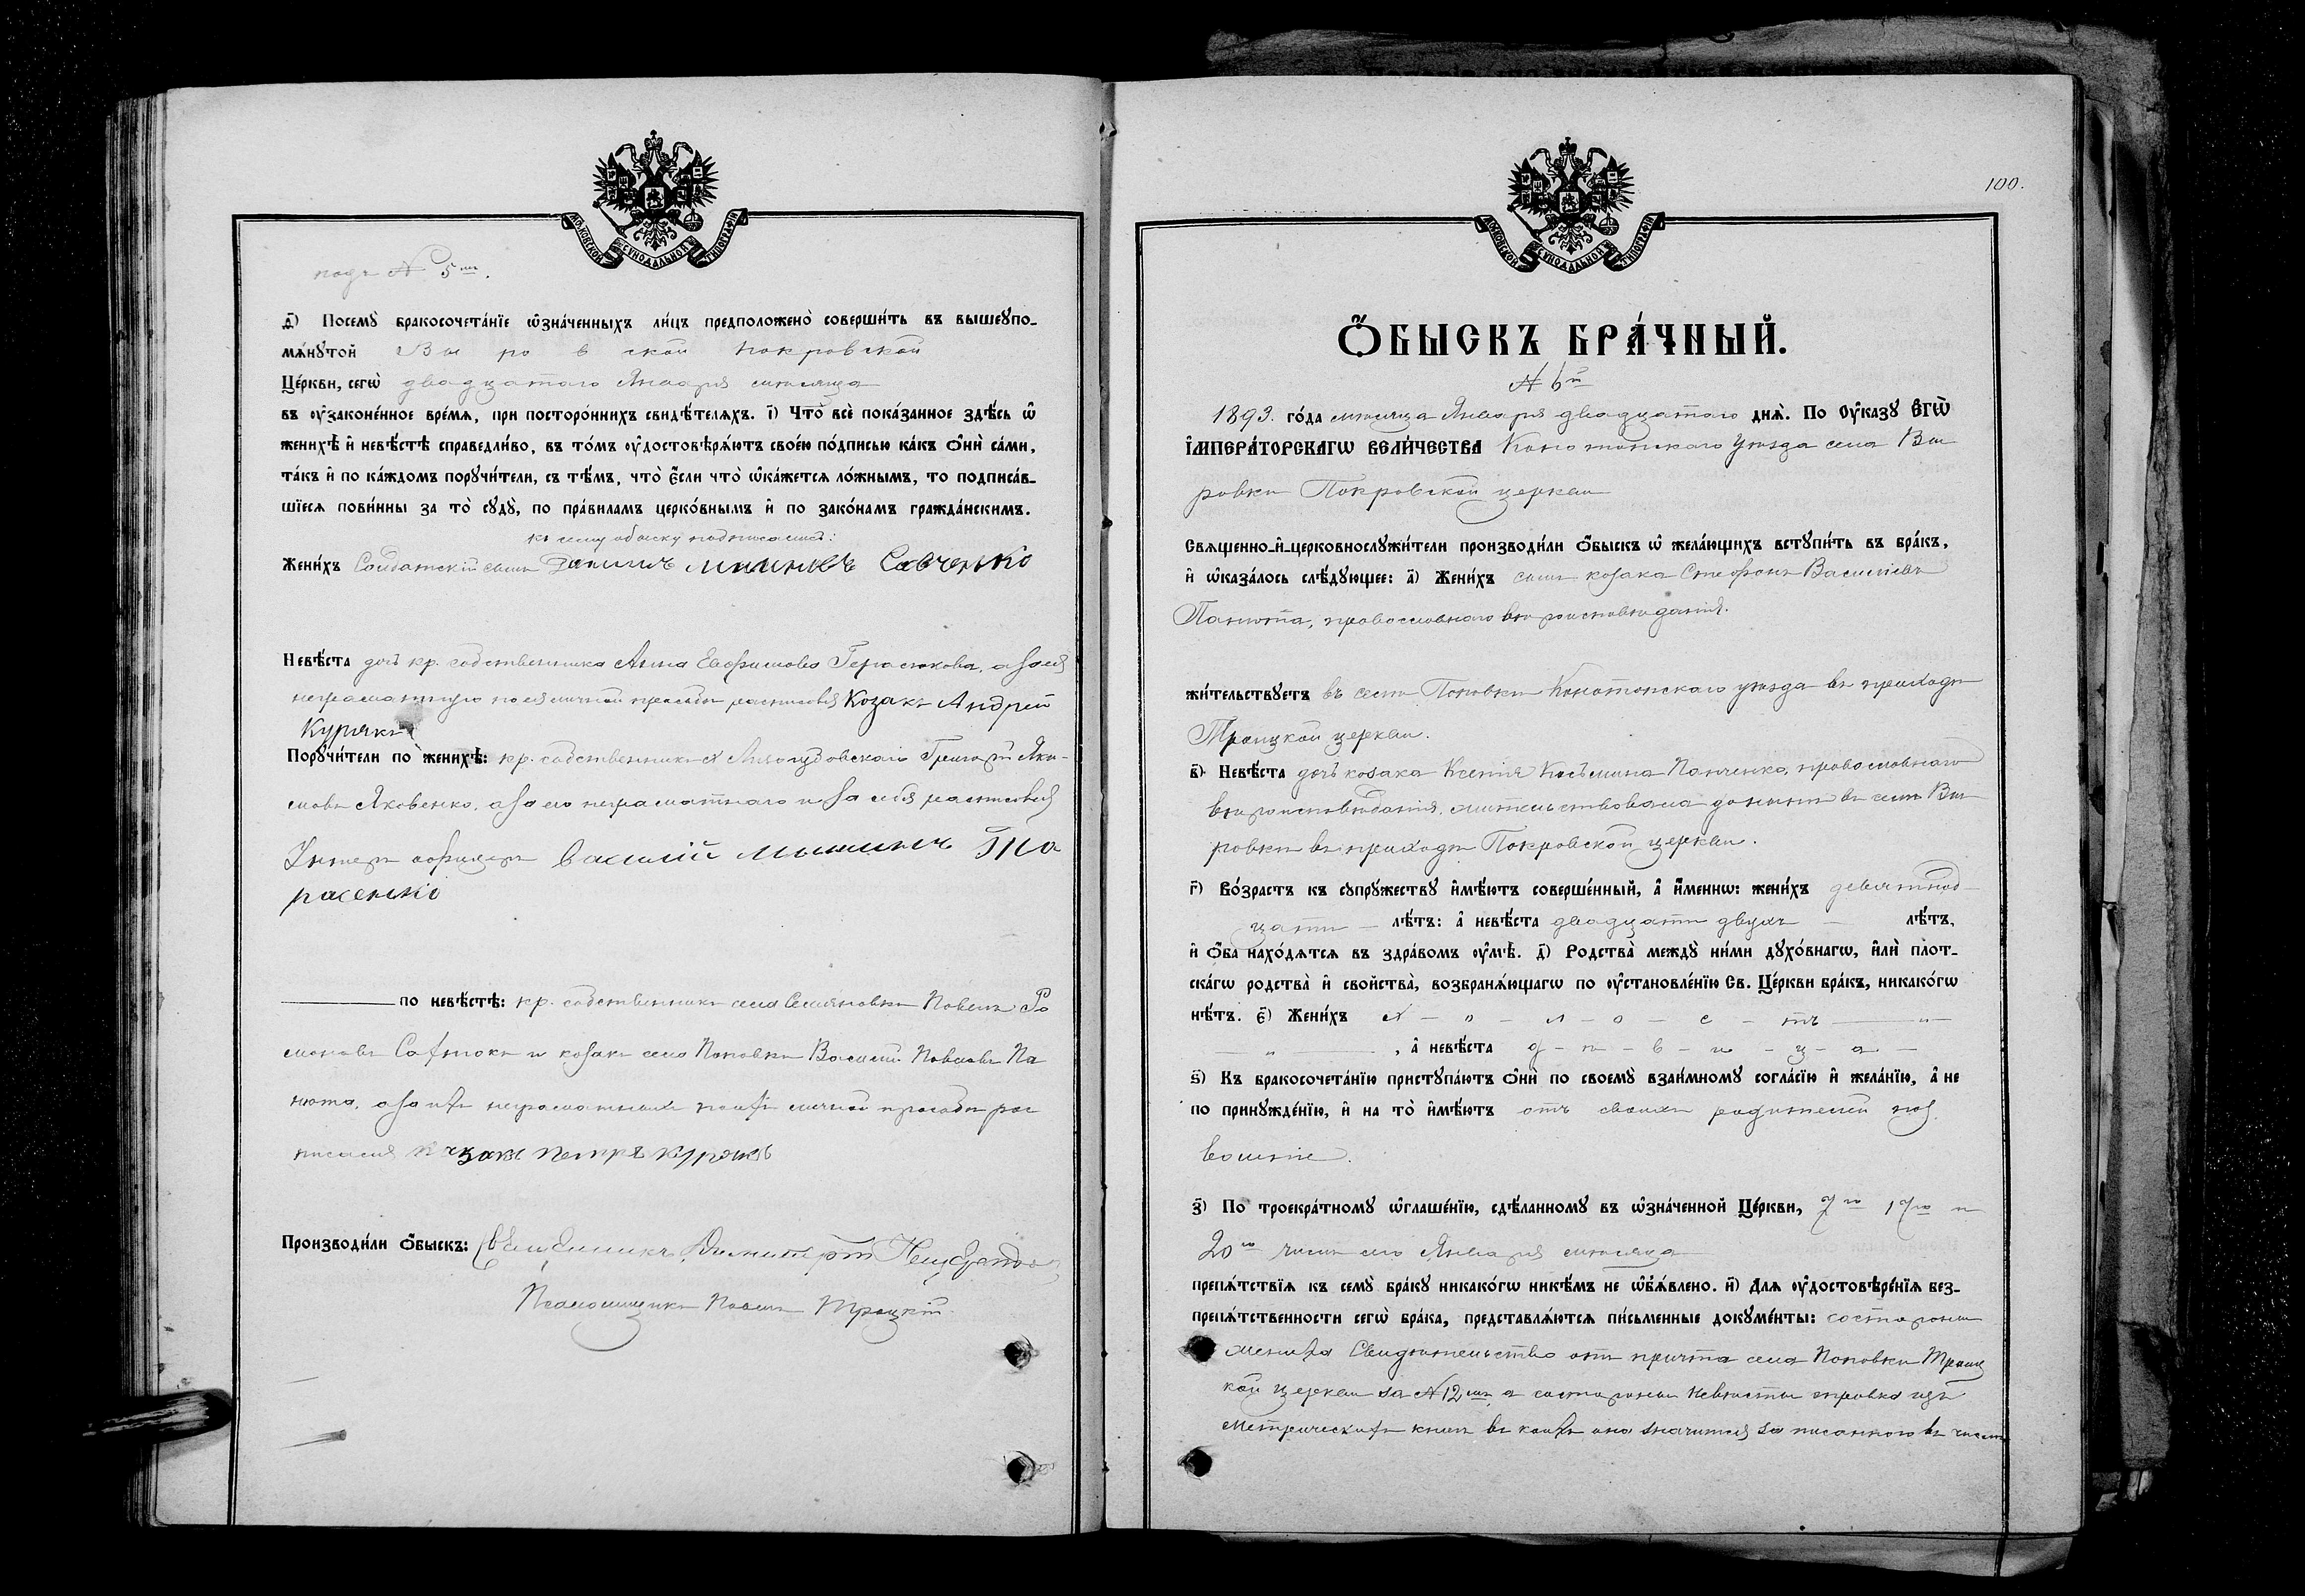 МОСКОВСКОЙ СѴНОДАЛЬНОЙ ТИПОГРАФІИ
подъ № 5мъ.
д҃) Посемꙋ̀ бракосочета́нїе ѡ҆зна́ченныхъ ли́цъ предположено̀ соверши́ть въ вышеꙋпо-
мѧ́нꙋтой Вы ро в ской Покровской
Це́ркви, сегѡ̀ двадцатаго Января мѣсяца
въ ᲂу҆законе́нное вре́мѧ, при посторо́ннихъ свидѣ́телѧхъ. і҃) Что̀ всѐ пока́занное здѣ́сь ѡ҆
женихѣ̀ и҆ невѣ́стѣ справедли́во, въ то́мъ ᲂу҆достовѣрѧ́ютъ свое́ю по́дписью ка́къ ѻ҆нѝ са́ми,
та́къ и҆ по ка́ждомъ порꙋчи́тели, съ тѣ́мъ, что̀ є҆́сли что̀ ѡ҆ка́жетсѧ ло́жнымъ, то подписа́в-
шїесѧ пови́нны за то̀ сꙋдꙋ̀, по пра́виламъ церко́внымъ и҆ по зако́намъ гражда́нскимъ.
къ сему обыску подписались:
Жени́хъ Солдатскій сынъ Даниилъ Савченко
Невѣ́ста дочь кр. собственника Анна Евфимова Герасюкова, а за нея
неграмотную по ея личной просьбѣ расписался Козакъ Андрей
Курякъ
Порꙋчи́тели по женихѣ̀: кр. собственникъ Григорій Яки-
мовъ Яковенко, а за его неграмотнаго и за себя расписался
Унтеръ офицеръ Василій Та
расенко
по невѣ́стѣ: кр. собственникъ села Семяновки Павелъ Ро
мановъ Сахнюкъ и козакъ села Поповки Василій Павловъ Па
нюта, а за ихъ неграмотныхъ по ихъ личной просьбѣ рос
писался казакъ Петръ Курякъ
Производи́ли ѻ҆́быскъ: Священникъ Димитрій
Псаломщикъ Павелъ Троцкій
100.
МОСКОВСКОЙ СѴНОДАЛЬНОЙ ТИПОГРАФІИ
Ѻ҆́БЫСКЪ БРА́ЧНЫЙ.
№ 6й
1893. го́да мѣсяца Января двадцатаго днѧ̀. По Оу҆ка́зꙋ Є҆ГѠ̀
І҆МПЕРА́ТОРСКАГѠ ВЕЛИ́ЧЕСТВА Конотопскаго Уѣзда села Вы
ровки Покровской церкви
Свѧщенно-и҆-церковнослꙋжи́тели производи́ли ѻ҆́быскъ ѡ҆ жела́ющихъ встꙋпи́ть въ бра́къ,
и҆ ѡ҆каза́лось слѣ́дꙋющее: а҃) Жени́хъ сынъ козака Стефанъ Василіевъ
Панюта, православнаго вѣроисповѣданія.
жи́тельствꙋетъ въ селѣ Поповки Конотопскаго уѣзда въ приходѣ
Троицкой церкви.
в҃) Невѣ́ста дочь козака Ксенія Косьмина Панченко, православнаго
вѣроисповѣданія, жительствовала донынѣ въ селѣ Вы
ровки въ приходѣ Покровской церкви.
г҃) Во́зрастъ къ сꙋпрꙋ́жествꙋ и҆мѣ́ютъ соверше́нный, а҆ и҆́меннѡ: жени́хъ девятнад-
цати — лѣ́тъ: а҆ невѣ́ста двадцати двухъ — лѣ́тъ,
и҆ ѻ҆́ба нахо́дѧтсѧ въ здра́вомъ ᲂу҆мѣ̀. д҃) Родства̀ междꙋ̀ ни́ми дꙋхо́внагѡ, и҆лѝ пло́т-
скагѡ родства̀ и҆ сво́йства̀, возбранѧ́ющагѡ по ᲂу҆становле́нїю Св. Це́ркви бра́къ, никако́гѡ
нѣ́тъ. є҃) Жени́хъ х - о - л - о - с - тъ — „ —
— „ —, а҆ невѣ́ста д - ѣ - в - и - ц - а —
ѕ҃) Къ бракосочета́нїю пристꙋпа́ютъ ѻ҆нѝ по своемꙋ̀ взаи́мномꙋ согла́сїю и҆ жела́нїю, а҆ не
по принꙋжде́нїю, и҆ на то̀ и҆мѣ́ютъ отъ своихъ родителей поз
воленіе.
з҃) По троекра́тномꙋ ѡ҆глаше́нїю, сдѣ́ланномꙋ въ ѡ҆зна́ченной Це́ркви, 7го 17го и
20го числъ сего Января мѣсяца
препѧ́тствїѧ къ семꙋ̀ бра́кꙋ никако́гѡ никѣ́мъ не ѡ҆б̾ѧ́влено. и҃) Длѧ ᲂу҆достовѣре́нїѧ без-
препѧ́тственности сегѡ̀ бра́ка, представлѧ́ютсѧ пи́сьменные докꙋме́нты: со стороны
жениха Свидѣтельство отъ причта села Поповки Троиц
кой церкви за № 12мъ, а со стороны невѣсты справка изъ
метрическихъ книгъ въ коихъ она значится записанною въ числѣ